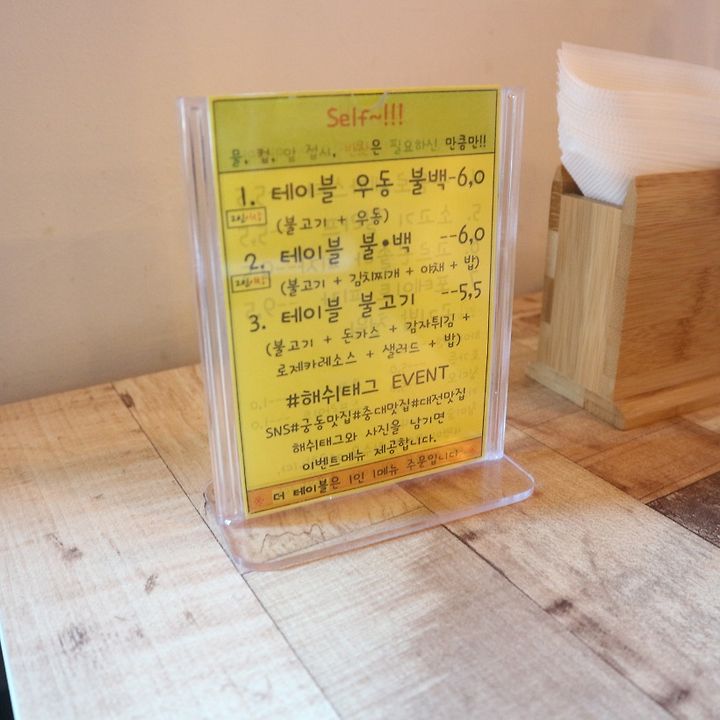 Self~!!!
물, 컵, 앞 접시, 반찬은 필요하신 만큼만!!
1. 테이블 우동 불백-6,0
2인이상
(불고기 + 우동)
2. 테이블 불•백 --6,0
2인이상
(불고기 + 김치찌개 + 야채 + 밥)
3. 테이블 불고기 --5,5
(불고기 + 돈가스 + 감자튀김 +
로제카레소스 + 샐러드 + 밥)
#해쉬태그 EVENT
SNS#궁동맛집#충대맛집#대전맛집
해쉬태그와 사진을 남기면
이벤트메뉴 제공합니다.
※ 더 테이블은 1인 1메뉴 주문입니다